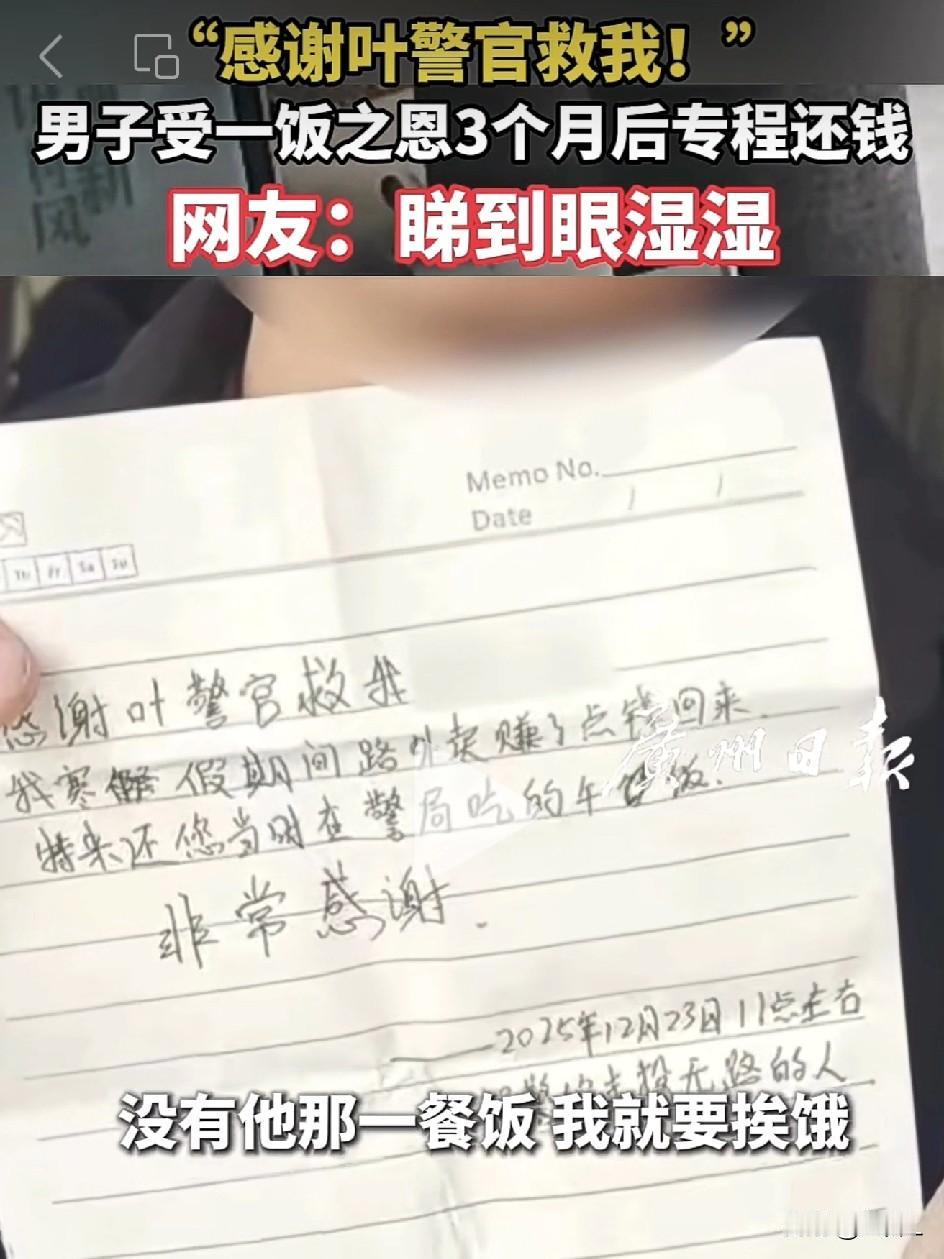 “感谢叶警官救我！”
男子受一饭之恩3个月后专程还钱
网友：睇到眼湿湿
新风
Memo No.
Date / /
Th Fr Sa Su
感谢叶警官救我
我寒假期间跑外卖赚了点钱回来.
特来还您当时在警局吃的午饭.
非常感谢.
——2025年12月23日11点左右
走投无路的人
没有他那一餐饭 我就要挨饿
广州日报